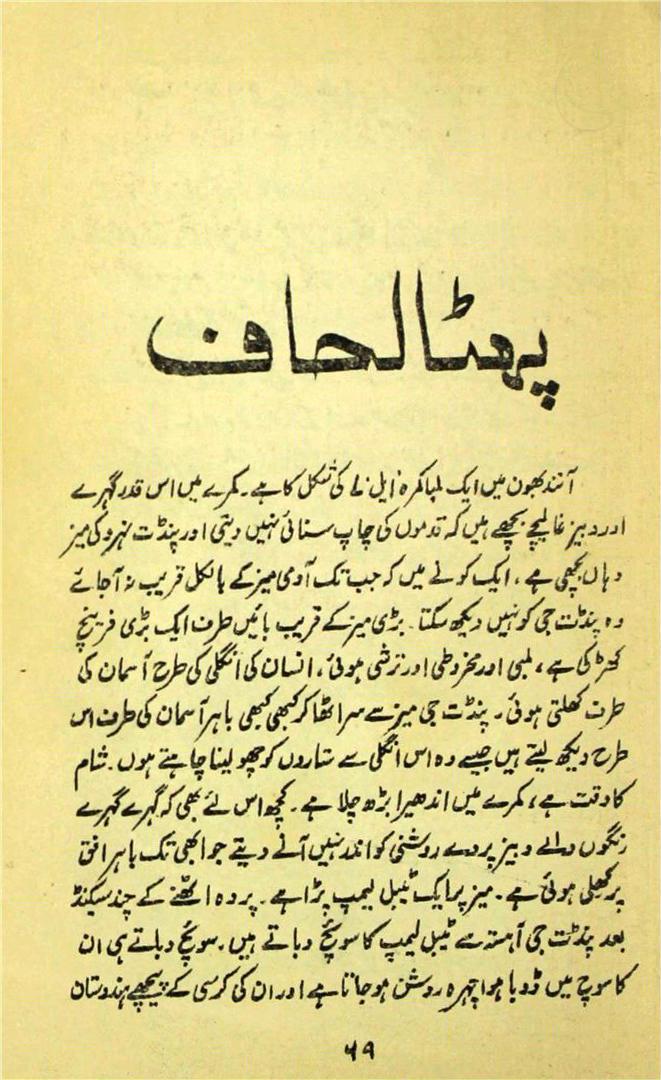 پھٹا لحاف
آنند بھون میں ایک لمبا کمرہ ’ایل‘ کی شکل کا ہے۔ کمرے میں اس قدر گہرے
اور دبیز غالیچے بچھے ہیں کہ قدموں کی چاپ سنائی نہیں دیتی اور پنڈت نہرو کی میز
وہاں بچھی ہے، ایک کونے میں کہ جب تک آدمی میز کے بالکل قریب نہ آجائے
وہ پنڈت جی کو نہیں دیکھ سکتا۔ بڑی میز کے قریب بائیں طرف ایک بڑی فرینچ
کھڑکی ہے، لمبی اور مخروطی اور ترشی ہوئی، انسان کی انگلی کی طرح آسمان کی
طرف کھلتی ہوئی۔ پنڈت جی میز سے سر اٹھا کر کبھی کبھی باہر آسمان کی طرف اس
طرح دیکھ لیتے ہیں جیسے وہ اس انگلی سے ستاروں کو چھو لینا چاہتے ہوں۔ شام
کا وقت ہے، کمرے میں اندھیرا بڑھ چلا ہے۔ کچھ اس لئے بھی کہ گہرے گہرے
رنگوں والے دبیز پردے روشنی کو اندر نہیں آنے دیتے جو ابھی تک باہر افق
پر کھلی ہوئی ہے۔ میز پر ایک ٹیبل لیمپ پڑا ہے۔ پردہ اٹھنے کے چند سیکنڈ
بعد پنڈت جی آہستہ سے ٹیبل لیمپ کا سوئچ دباتے ہیں۔ سوئچ دباتے ہی ان
کا سوچ میں ڈوبا ہوا چہرہ روشن ہو جاتا ہے اور ان کی کرسی کے پیچھے ہندوستان
۶۹